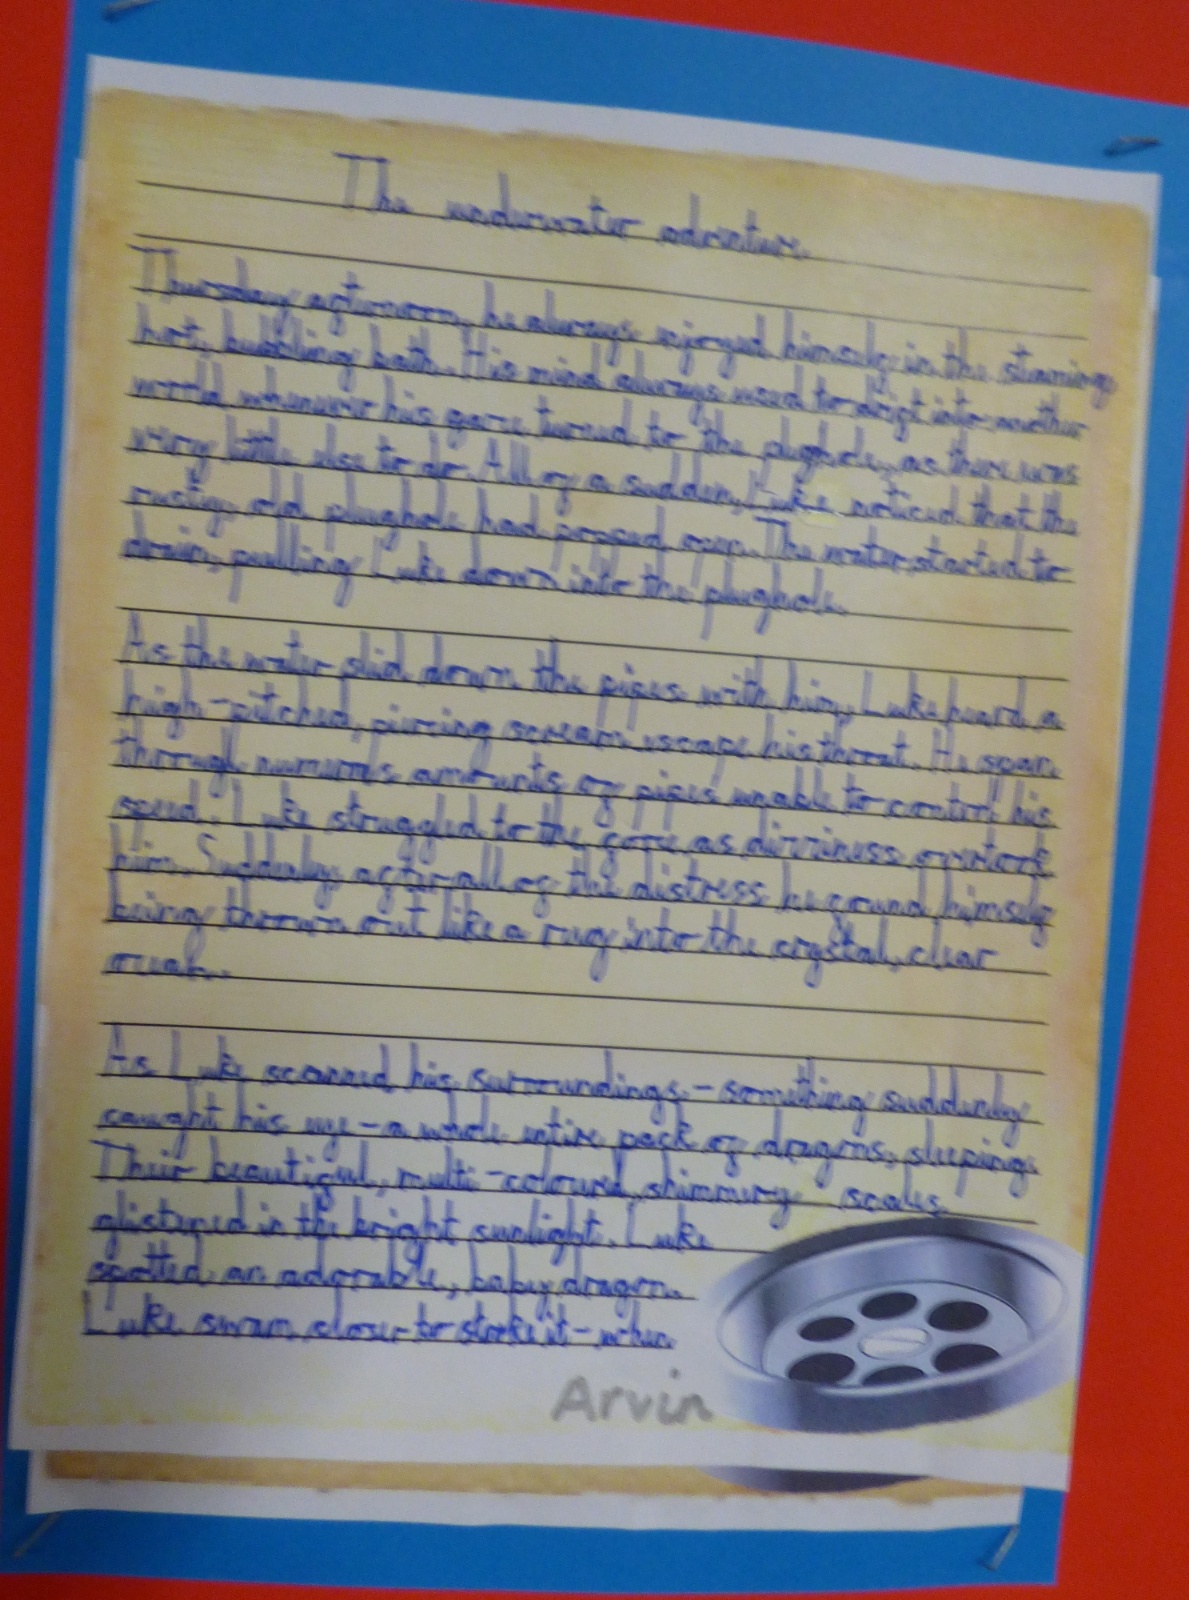 The underwater adventure.
Thursday afternoon, he always enjoyed himself in the steaming
hot, bubbling bath. His mind always used to drift into another
world whenever his gaze turned to the plughole, as there was
very little else to do. All of a sudden, Luke noticed that the
rusty, old plughole had popped open. The water started to
drain, pulling Luke down into the plughole.
As the water slid down the pipes with him, Luke heard a
high-pitched, piercing scream escape his throat. He span
through numerous amounts of pipes unable to control his
speed. Luke struggled to the as dizziness overtook
him. Suddenly, after all of the distress he found himself
being thrown out like a rug into the crystal, clear
ocean.
As Luke scanned his surroundings - something suddenly
caught his eye - a whole entire pack of dragons, sleeping.
Their beautiful, multi-coloured, shimmery scales
glistened in the bright sunlight. Luke
spotted an adorable, baby dragon.
Luke swam closer to stroke it - when
Arvin